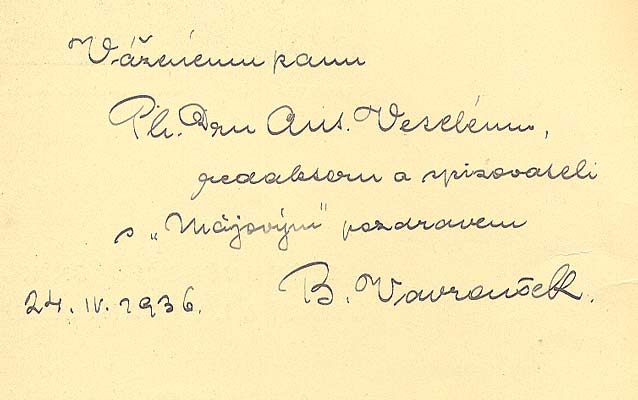 Váženému panu
Ph. Dru Ant. Veselému,
redaktoru a spisovateli
s „Májovým" pozdravem
B. Vavroušek.
24. IV. 1936.